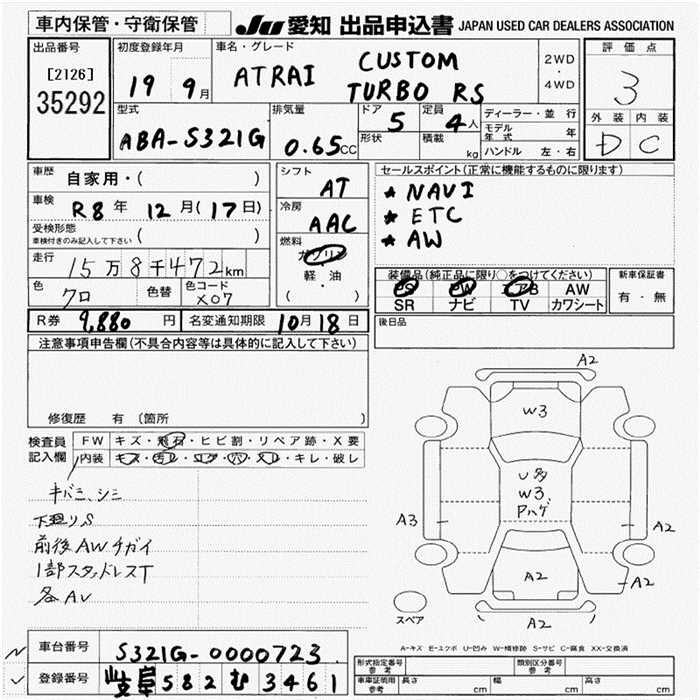 車内保管・守衛保管
JU 愛知 出品申込書 JAPAN USED CAR DEALERS ASSOCIATION
出品番号
[2126]
35292
初度登録年月
19 9月
車名・グレード
ATRAI CUSTOM
TURBO RS
2WD
・
4WD
評価点
3
外装 内装
D C
型式
ABA-S321G
排気量
0.65CC
ドア 5
形状
定員 4人
積載 kg
ディーラー・並行
モデル年式 年
ハンドル 左・右
車歴 自家用・( )
車検 R8年 12月(17日)
受検形態
車検付きのみ記入して下さい ( )
走行
15万8千472km
色 クロ
色替
色コード X07
シフト AT
冷房 AAC
燃料
ガソリン
軽・油
( ・ )
セールスポイント(正常に機能するものに限ります)
★ NAVI
★ ETC
★ AW
装備品(純正品に限り○をつけてください)
PS PW エアB AW
SR ナビ TV カワシート
新車保証書
有・無
R券 9,880円 名変通知期限 10月18日
後日品
注意事項申告欄(不具合内容等は具体的に記入して下さい)
修復歴 有 〔箇所 〕
検査員記入欄
FW キズ・飛石・ヒビ割・リペア跡・X要
内装 キズ・汚レ・コゲ・穴・スレ・キレ・破レ
キバミ、シミ
下廻りS
前後AWチガイ
1部スタッドレスT
各AU
A2
W3
U多
W3
Pハゲ
A3
A2
A2
A2
スペア
A2
A-キズ E-エクボ U-凹み W-補修跡 S-サビ C-腐食 XX-交換済
車台番号 S321G-0000723
登録番号 岐阜 582 む 3461
形式指定番号 参考
類別区分番号 参考
車庫証明用 参考 長さ cm 幅 cm 高さ cm